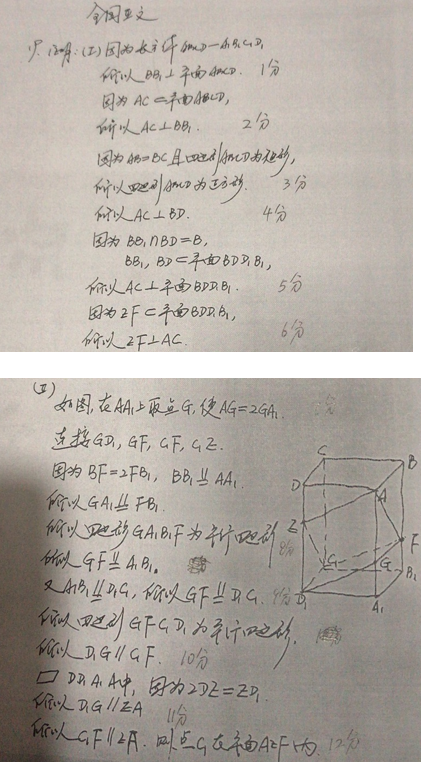 全国Ⅲ文
19. 证明:(Ⅰ)因为长方体ABCD-A₁B₁C₁D₁
所以BB₁⊥平面ABCD. 1分
因为AC⊂平面ABCD,
所以AC⊥BB₁. 2分
因为AB=BC且四边形ABCD为矩形,
所以四边形ABCD为正方形. 3分
所以AC⊥BD. 4分
因为BB₁∩BD=B,
BB₁, BD⊂平面BDD₁B₁,
所以AC⊥平面BDD₁B₁. 5分
因为EF⊂平面BDD₁B₁,
所以EF⊥AC. 6分
(Ⅱ)
如图,在AA₁上取点G,使AG=2GA₁.
连接GD₁, GF, C₁F, C₁E.
因为BF=2FB₁, BB₁∥=AA₁.
所以GA₁∥=FB₁.
所以四边形GA₁B₁F为平行四边形 8分
所以GF∥=A₁B₁.
又A₁B₁∥=D₁C₁, 所以GF∥=D₁C₁. 9分
所以四边形GFC₁D₁为平行四边形.
所以D₁G∥C₁F. 10分
□DD₁A₁A中, 因为2DE=ED₁
所以D₁G∥EA 11分
所以C₁F∥EA. 则点C₁在平面AEF内. 12分
C
B
D
A
E
F
C₁
G
B₁
D₁
A₁